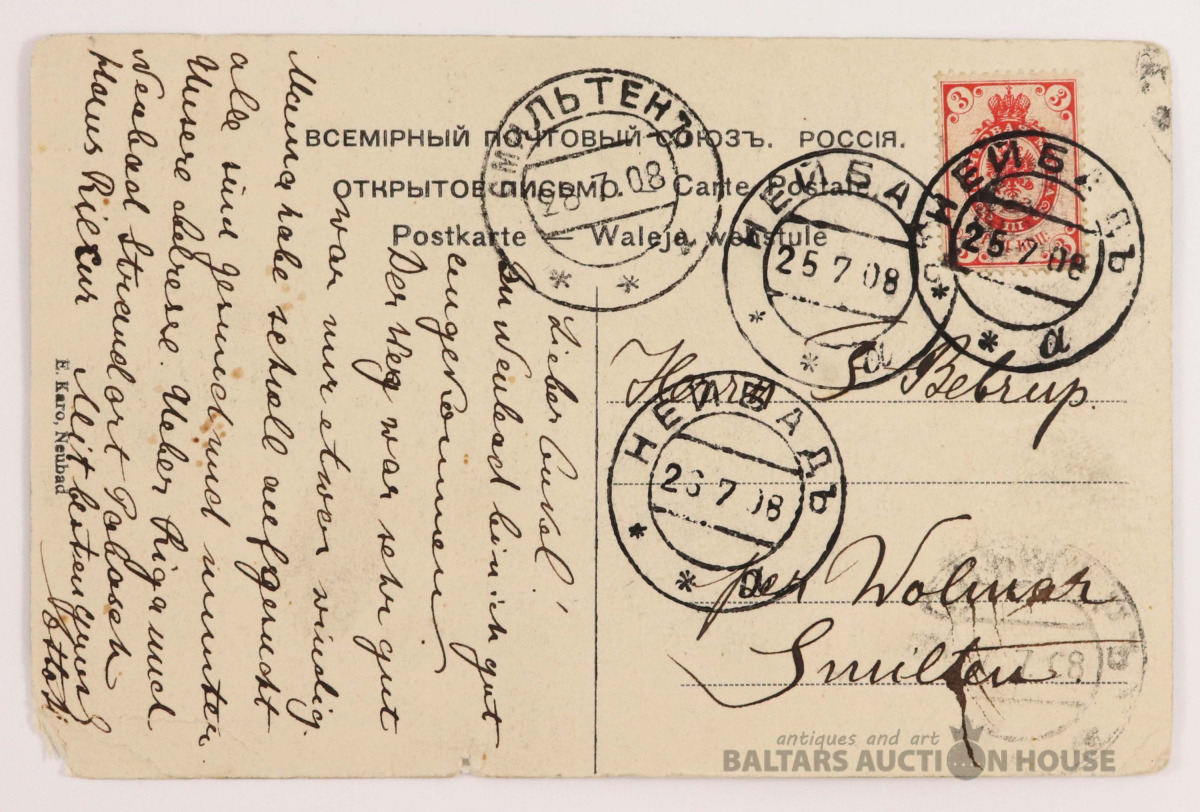 ВСЕМІРНЫЙ ПОЧТОВЫЙ СОЮЗЪ. РОССІЯ.
ОТКРЫТОЕ ПИСЬМО. Carte Postale
Postkarte — Waleja wehstule
СМОЛЬТЕНЪ
26 7 08
НЕЙБАДЪ
25 7 08
а
НЕЙБАДЪ
25 7 08
а
НЕЙБАДЪ
26 7 08
а
7 08
3 3
3 3
Herrn F. Bebrup.
per Wolmar
Smilten
Lieber
In Neubad bin ich gut
angekommen
Der Weg war sehr gut
war nur etwas windig.
Mama habe schon
alle sind gesund und munter
Unsere Adresse. Ueber Riga und
Neubad Strandort
Haus
Mit besten Gruss
E. Karo, Neubad
antiques and art
BALTARS AUCTION HOUSE